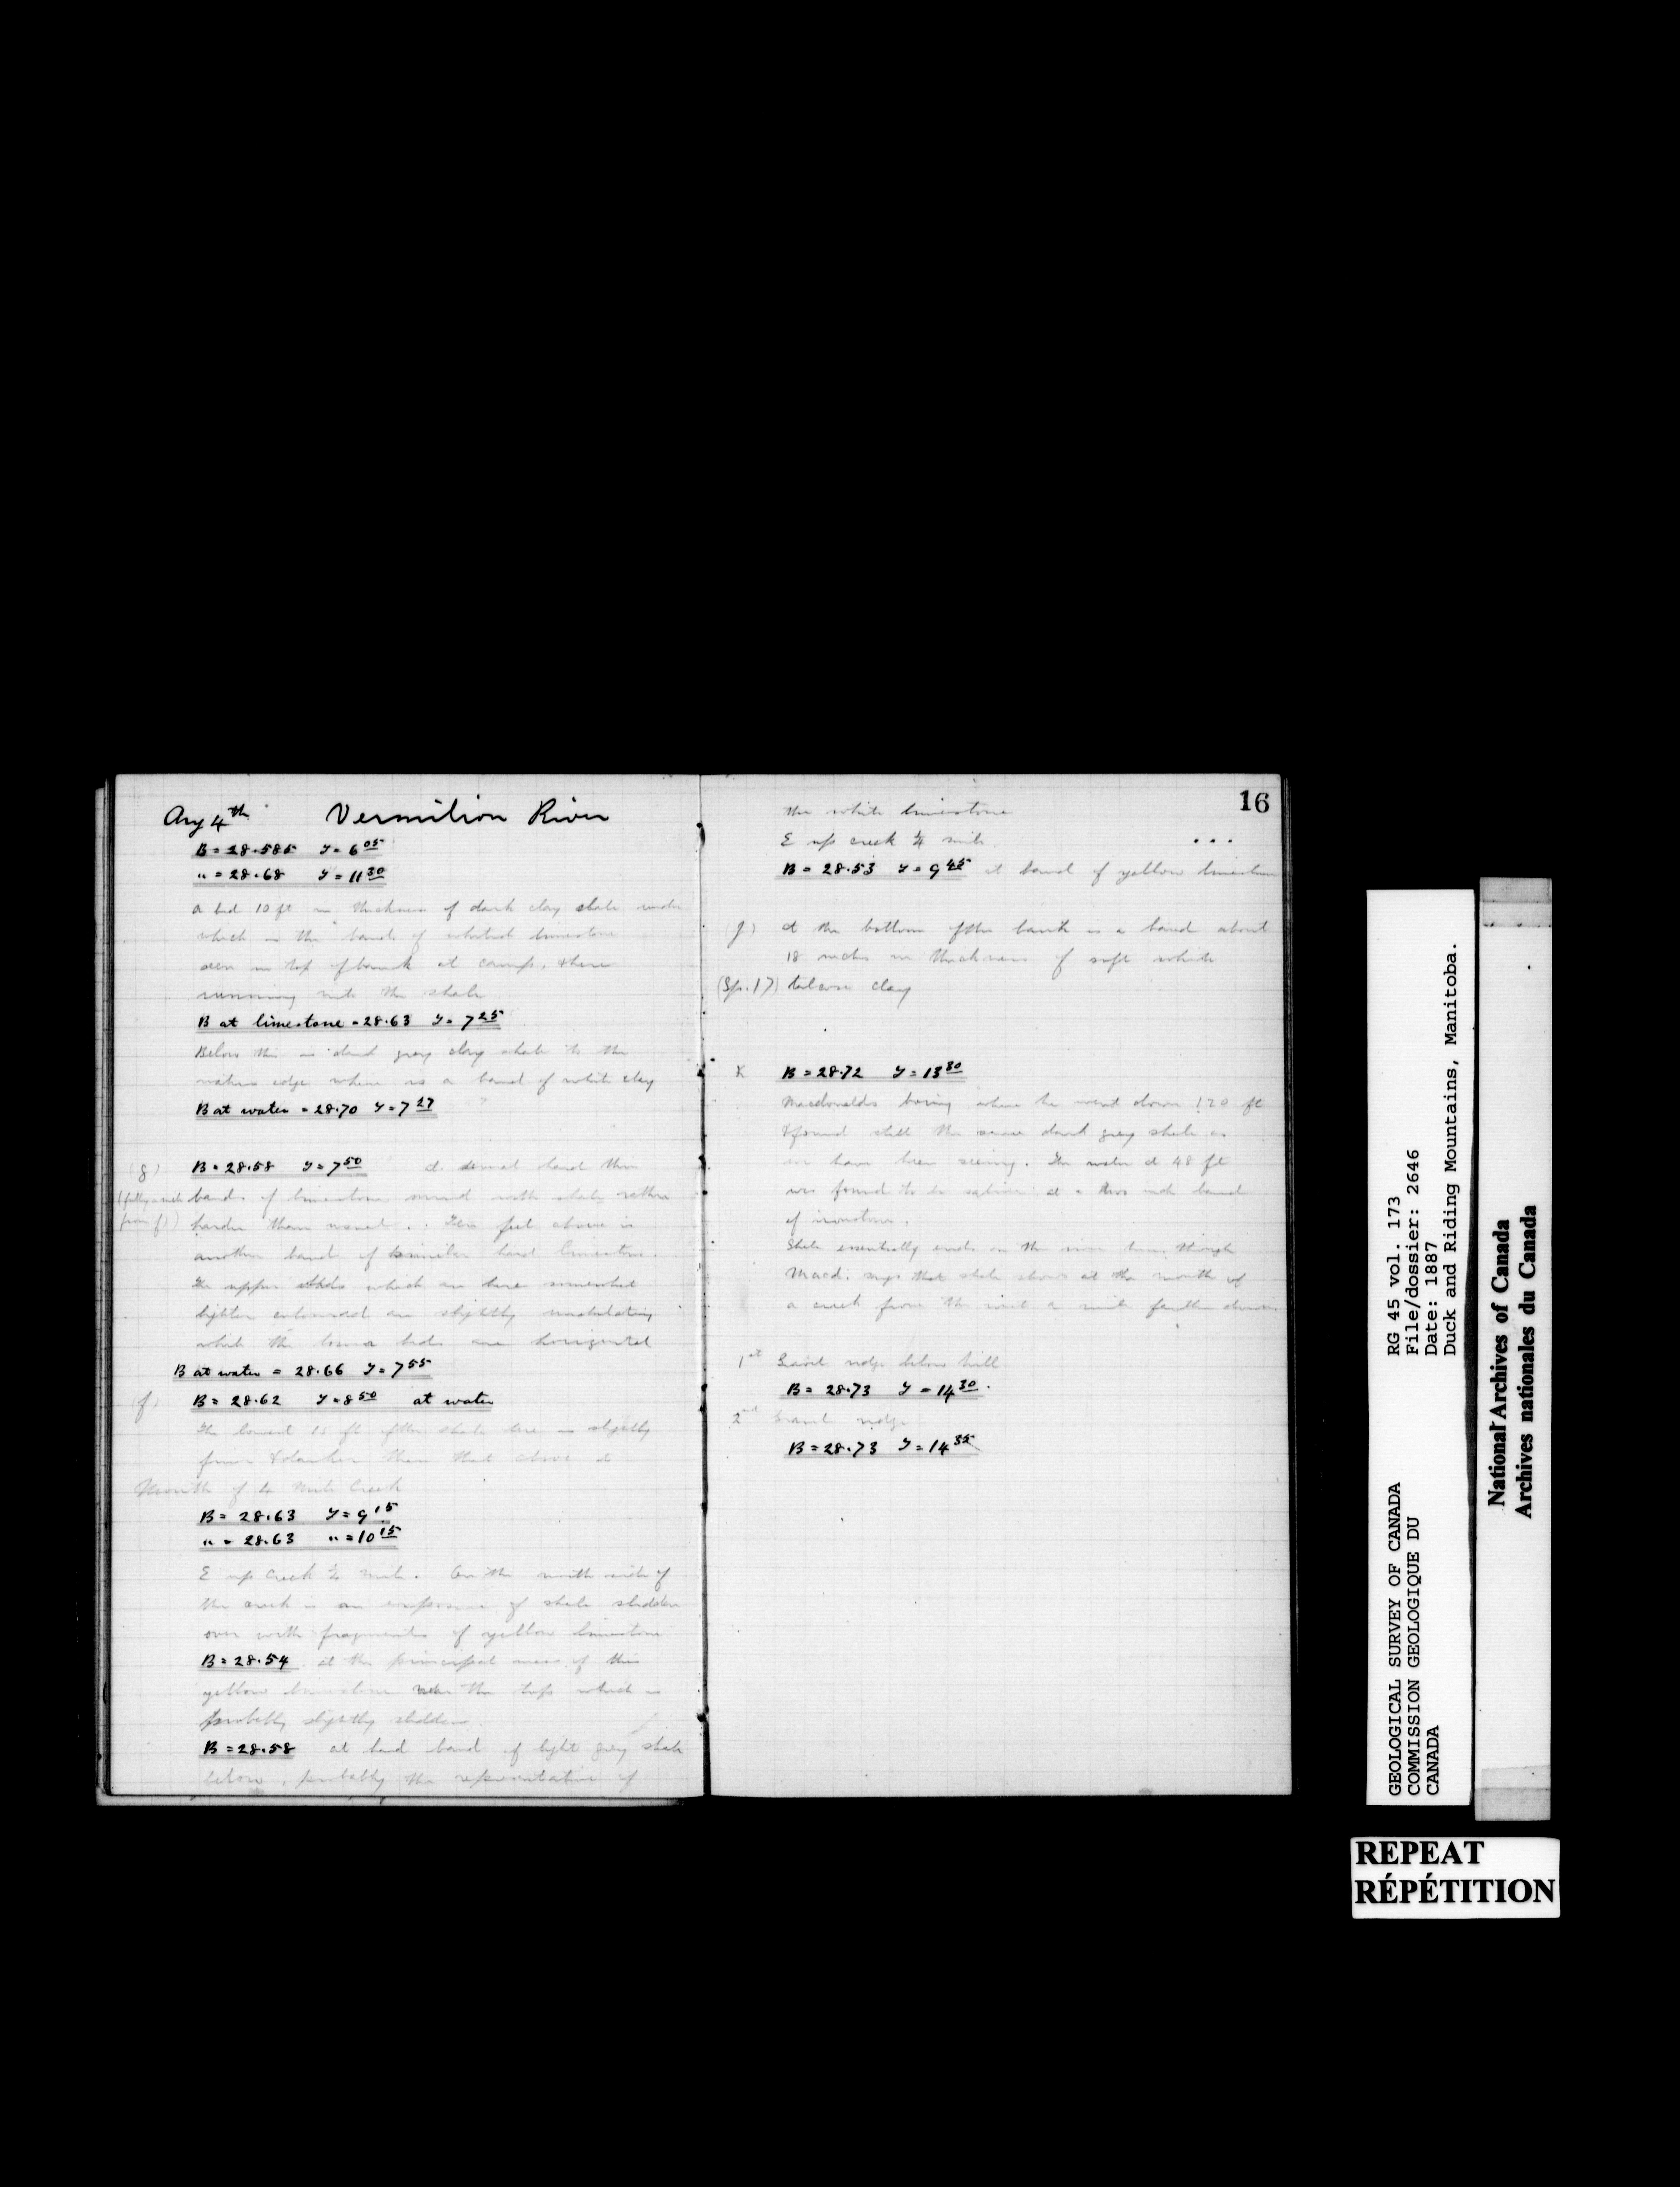 Aug 4th Vermilion River
B = 28.585 T = 6 05
" = 28.68 T = 11 30
A bed 10 ft in thickness of dark clay shale under
which is the band of whitish limestone
seen in top of bank at camp, there
running into the shale
B at limestone = 28.63 T = 7 25
Below this is dark grey clay shale to the
waters edge where is a band of white clay
B at water = 28.70 T = 7 27 ?
(g) B = 28.58 T = 7 50 at several hard thin
bands of limestone mixed with shale rather
from f)) harder than usual. Ten feet above is
another band of similar hard limestone.
The upper beds which are here somewhat
lighter coloured are slightly undulating
while the lower beds are horizontal
B at water = 28.66 T = 7 55
(f) B = 28.62 T = 8 50 at water
The lowest 15 ft of the shale here is slightly
finer & darker than that above it
Mouth of 4 Mile Creek
B = 28.63 T = 9 15
" = 28.63 " = 10 15
E up Creek ½ mile. On the north side of
the creek is an exposure of shale slidden
over with fragments of yellow limestone
B = 28.54 at the principal mass of this
yellow limestone near the top which is
probably slightly slidden.
B = 28.58 at hard band of light grey shale
below, probably the representative of
16
the white limestone
E up creek ¼ mile
B = 28.53 T = 9 45 at band of yellow limestone
(j) At the bottom of the bank is a band about
18 inches in thickness of soft white
(Sp. 17) talcose clay
K B = 28.72 T = 13 30
Macdonalds boring where he went down 120 ft
& found still the same dark grey shale as
we have been seeing. The water at 48 ft
was found to be saline at a two inch band
of ironstone.
Shale essentially ends on the river here though
Macd. says that shale shows at the mouth of
a creek from the west a mile farther down
1st Gravel ridge below hill
B = 28.73 T = 14 30.
2nd Gravel ridge
B = 28.73 T = 14 35
RG 45 vol. 173
File/dossier: 2646
Date: 1887
Duck and Riding Mountains, Manitoba.
GEOLOGICAL SURVEY OF CANADA
COMMISSION GEOLOGIQUE DU
CANADA
National Archives of Canada
Archives nationales du Canada
REPEAT
RÉPÉTITION